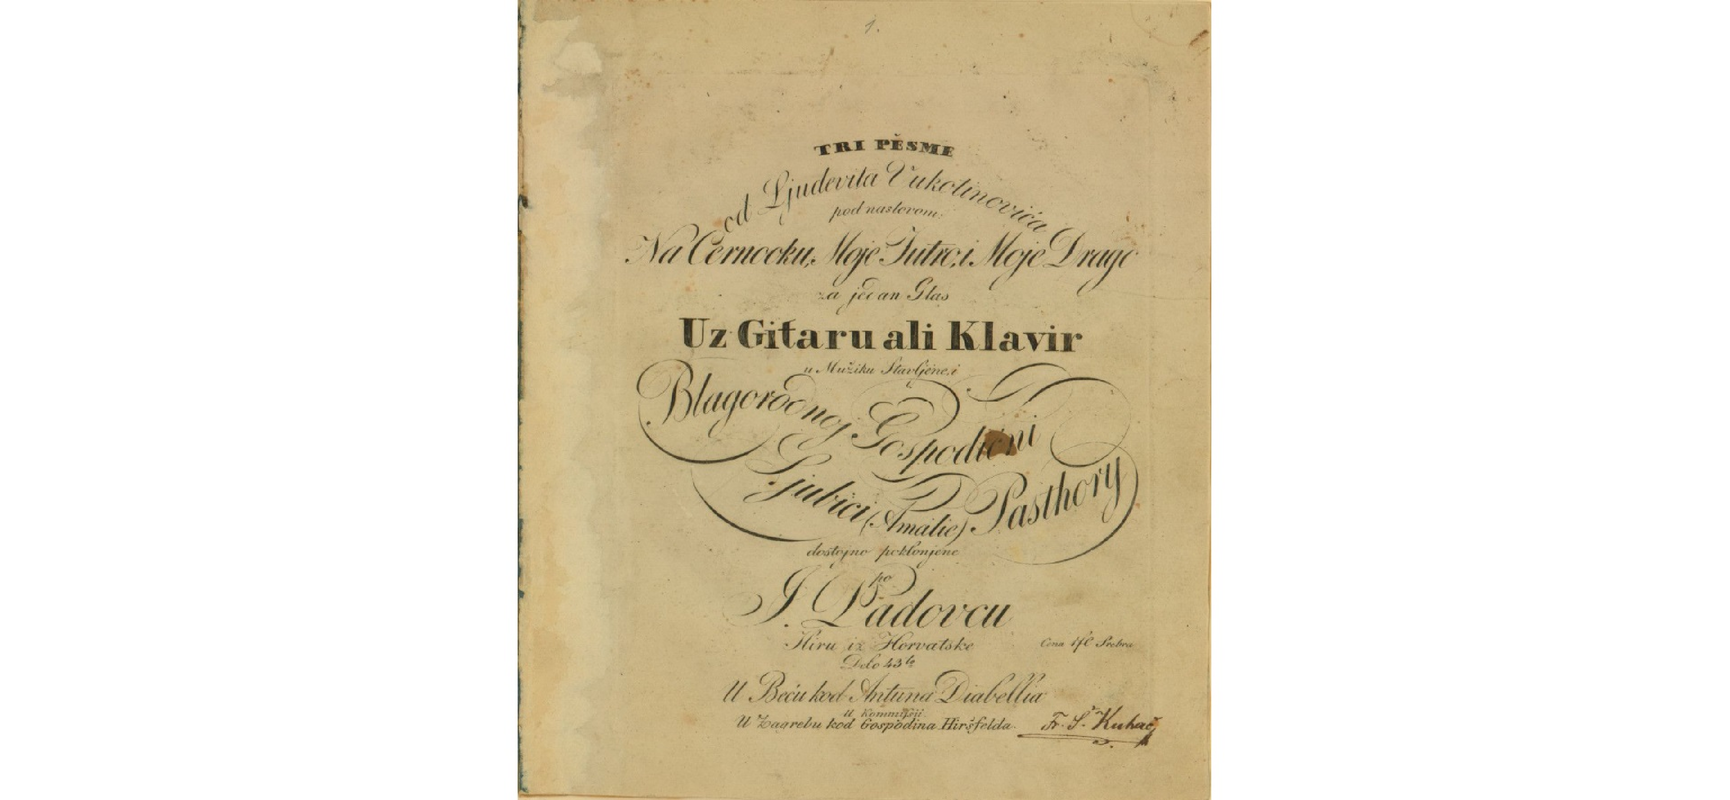 1.
TRI PĚSME
od Ljudevita Vukotinovića
pod naslovom:
Na Černooku, Moje Jutro, i Moje Drago
za jedan Glas
Uz Gitaru ali Klavir
u Mužiku Stavljene, i
Blagorodnoj Gospodični
Ljubici (Amalie) Pasthory
dostojno poklonjene
po
J. Padovcu
Iliru iz Horvatske
Cena 1 fl Srebra
Dělo 43
U Beču kod Antuna Diabellia
U Kommissii
U Zagrebu kod Gospodina Hiršfelda
Fr. Š. Kuhač